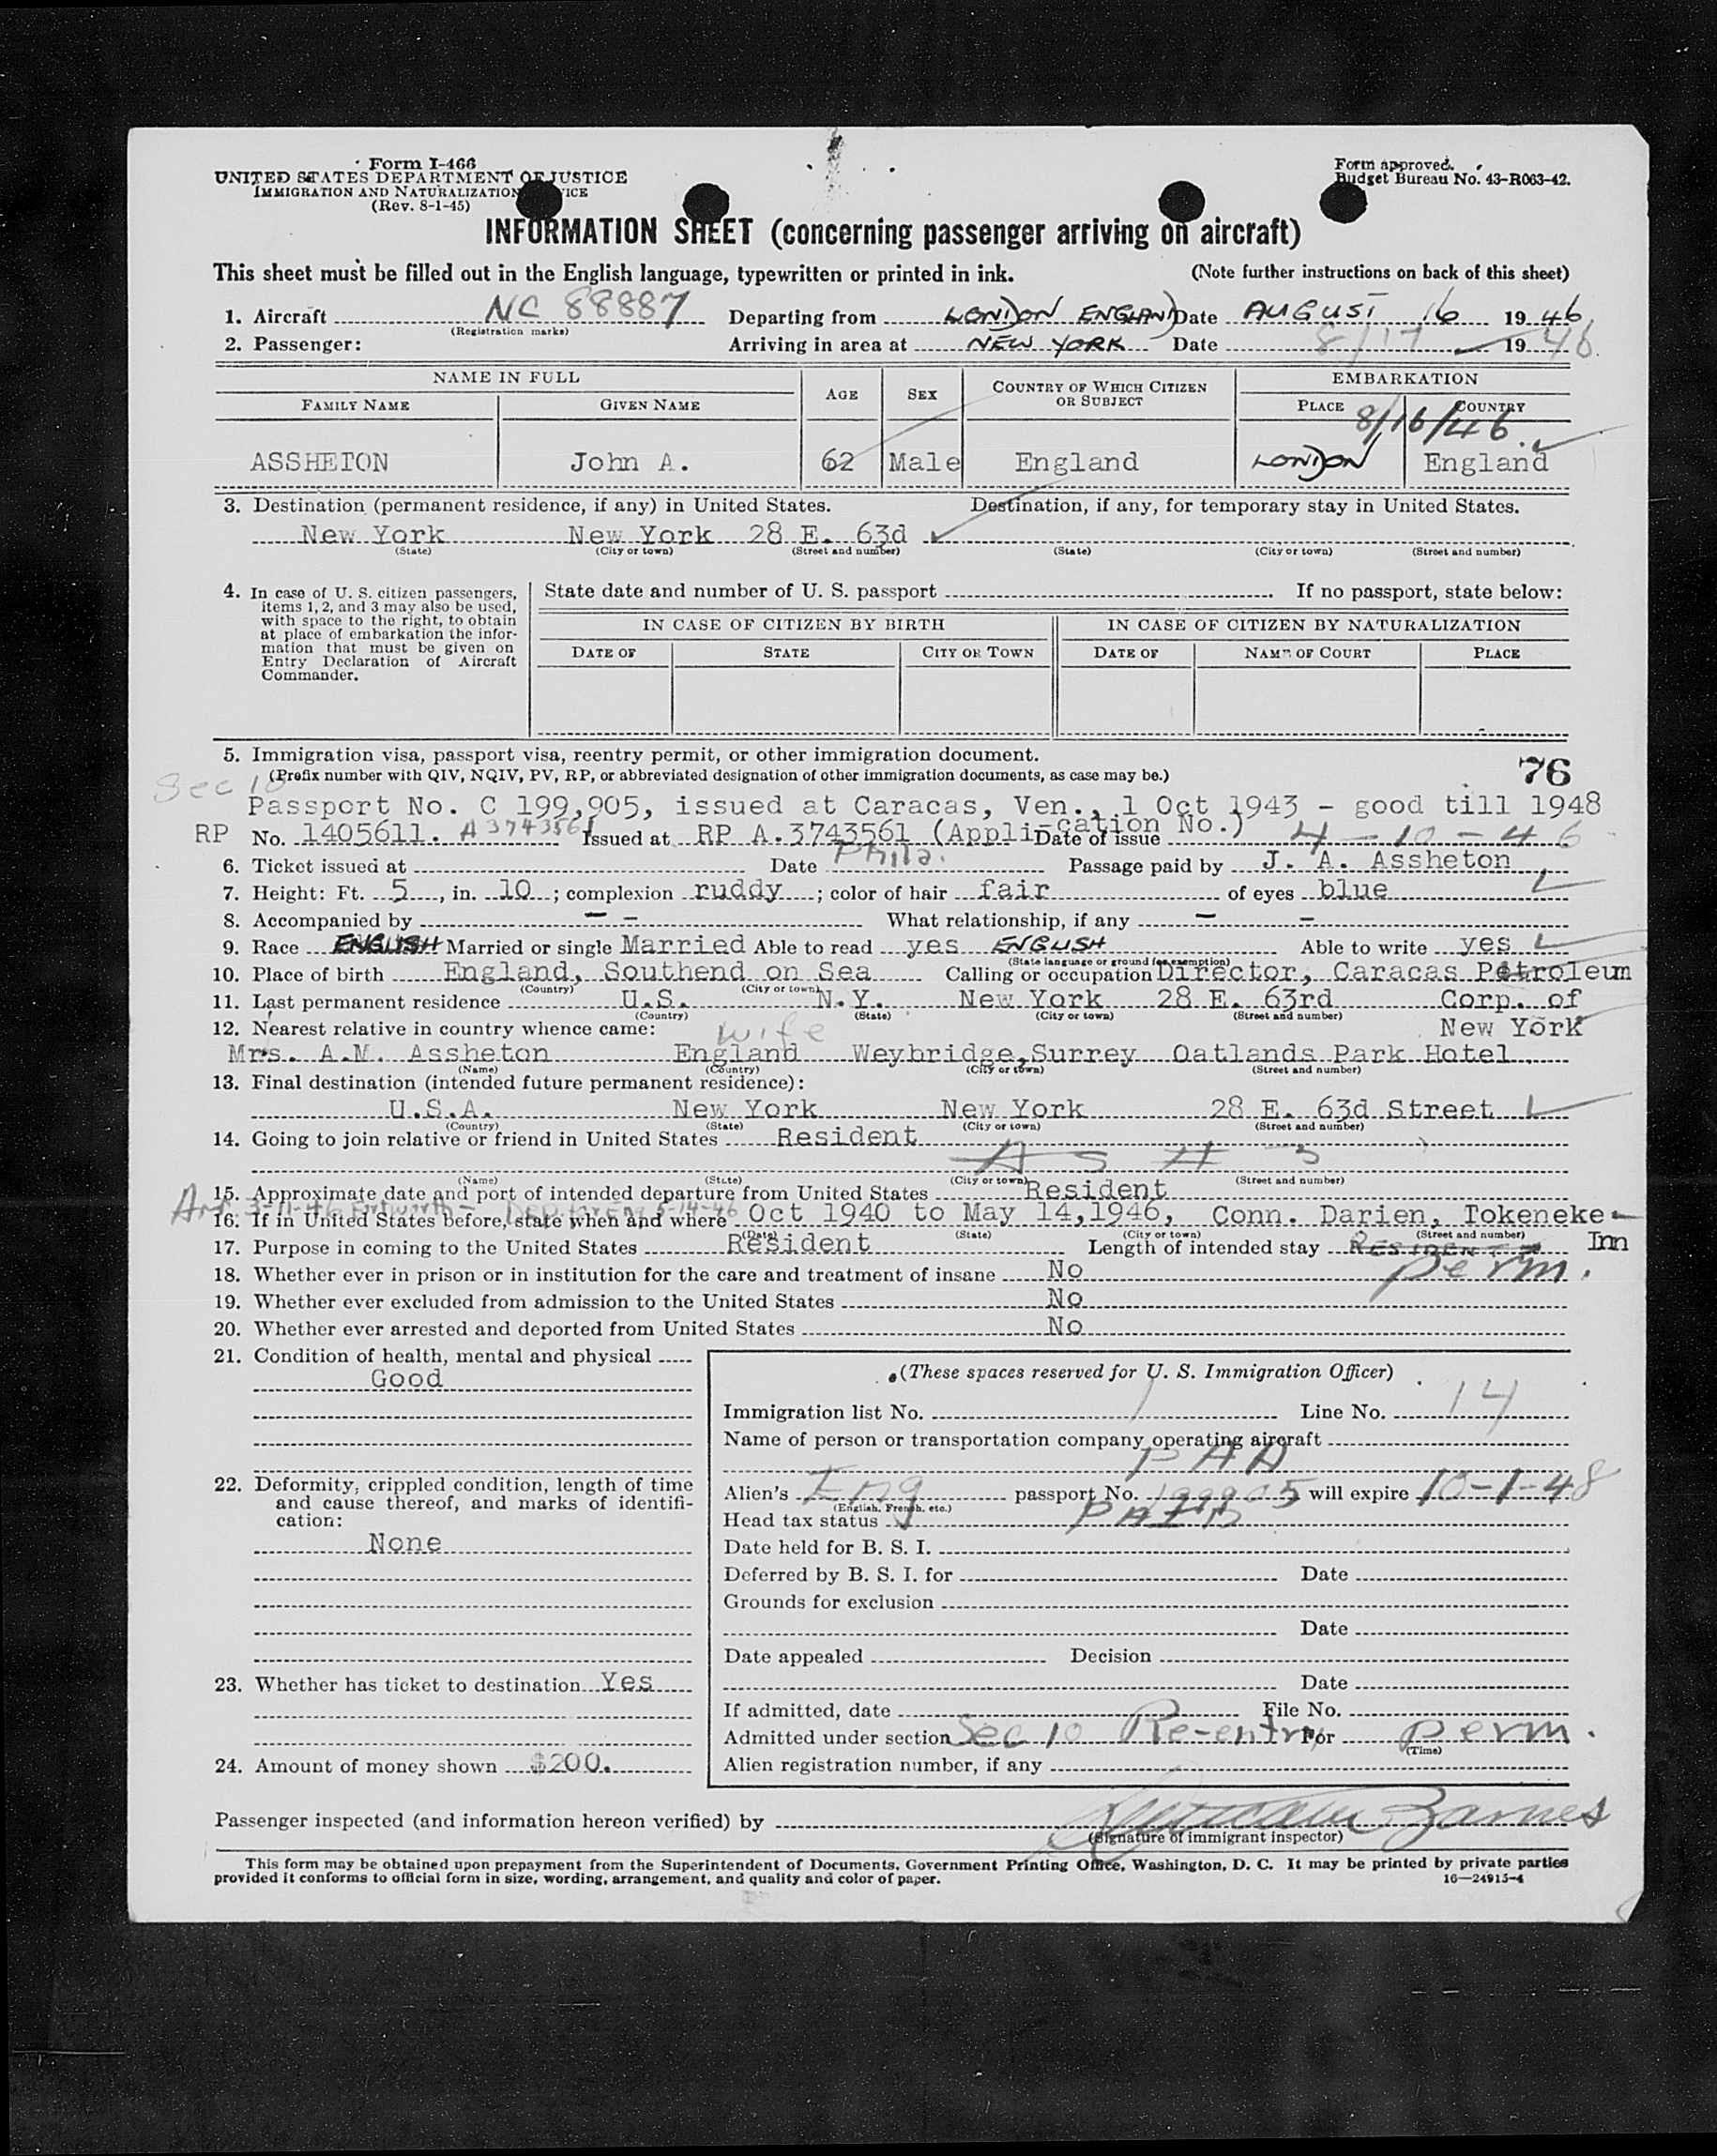 Form I-466
UNITED STATES DEPARTMENT OF JUSTICE
IMMIGRATION AND NATURALIZATION
(Rev. 8-1-45)
Form approved.
Budget Bureau No. 43-R063-42.
INFORMATION SHEET (concerning passenger arriving on aircraft)
This sheet must be filled out in the English language, typewritten or printed in ink. (Note further instructions on back of this sheet)
1. Aircraft NC 88887 Departing from LONDON ENGLAND Date AUGUST 16 1946
(Registration marks)
2. Passenger: Arriving in area at NEW YORK Date 8/17 1946.
NAME IN FULL AGE SEX COUNTRY OF WHICH CITIZEN OR SUBJECT EMBARKATION
FAMILY NAME GIVEN NAME PLACE COUNTRY
8/16/46.
ASSHETON John A. 62 Male England LONDON England
3. Destination (permanent residence, if any) in United States. Destination, if any, for temporary stay in United States.
New York New York 28 E. 63d
(State) (City or town) (Street and number) (State) (City or town) (Street and number)
4. In case of U. S. citizen passengers, items 1, 2, and 3 may also be used, with space to the right, to obtain at place of embarkation the information that must be given on Entry Declaration of Aircraft Commander.
State date and number of U. S. passport . If no passport, state below:
IN CASE OF CITIZEN BY BIRTH IN CASE OF CITIZEN BY NATURALIZATION
DATE OF STATE CITY OR TOWN DATE OF NAME OF COURT PLACE
5. Immigration visa, passport visa, reentry permit, or other immigration document. 76
Sec 10 (Prefix number with QIV, NQIV, PV, RP, or abbreviated designation of other immigration documents, as case may be.)
Passport No. C 199,905, issued at Caracas, Ven., 1 Oct 1943 - good till 1948
RP No. 1405611. A3743561 Issued at RP A.3743561 (Application No.) Date of issue 4-10-46
6. Ticket issued at Date Phila. Passage paid by J. A. Assheton
7. Height: Ft. 5, in. 10; complexion ruddy; color of hair fair of eyes blue
8. Accompanied by - - What relationship, if any - -
9. Race ENGLISH Married or single Married Able to read yes ENGLISH Able to write yes
(State language or ground for exemption)
10. Place of birth England, Southend on Sea Calling or occupation Director, Caracas Petroleum
(Country) (City or town)
11. Last permanent residence U.S. N.Y. New York 28 E. 63rd Corp. of
(Country) (State) (City or town) (Street and number)
12. Nearest relative in country whence came: wife New York
Mrs. A.M. Assheton England Weybridge, Surrey Oatlands Park Hotel
(Name) (Country) (City or town) (Street and number)
13. Final destination (intended future permanent residence):
U.S.A. New York New York 28 E. 63d Street
(Country) (State) (City or town) (Street and number)
14. Going to join relative or friend in United States Resident
(Name) (State) (City or town) (Street and number)
15. Approximate date and port of intended departure from United States Resident
16. If in United States before, state when and where Oct 1940 to May 14,1946, Conn. Darien, Tokeneke
(Date) (State) (City or town) (Street and number)
17. Purpose in coming to the United States Resident Length of intended stay RESIDENT Inn
perm.
18. Whether ever in prison or in institution for the care and treatment of insane No
19. Whether ever excluded from admission to the United States No
20. Whether ever arrested and deported from United States No
21. Condition of health, mental and physical
Good
22. Deformity, crippled condition, length of time and cause thereof, and marks of identification:
None
23. Whether has ticket to destination Yes
24. Amount of money shown $200.
(These spaces reserved for U. S. Immigration Officer)
Immigration list No. 1 Line No. 14
Name of person or transportation company operating aircraft
PAA
Alien's Eng passport No. 199905 will expire 10-1-48
(English, French, etc.)
Head tax status PAID
Date held for B. S. I.
Deferred by B. S. I. for Date
Grounds for exclusion
Date
Date appealed Decision
Date
If admitted, date File No.
Admitted under section Sec 10 Re-entry For perm.
(Time)
Alien registration number, if any
Passenger inspected (and information hereon verified) by Barnes
(Signature of immigrant inspector)
This form may be obtained upon prepayment from the Superintendent of Documents, Government Printing Office, Washington, D. C. It may be printed by private parties
provided it conforms to official form in size, wording, arrangement, and quality and color of paper. 16—24915-4